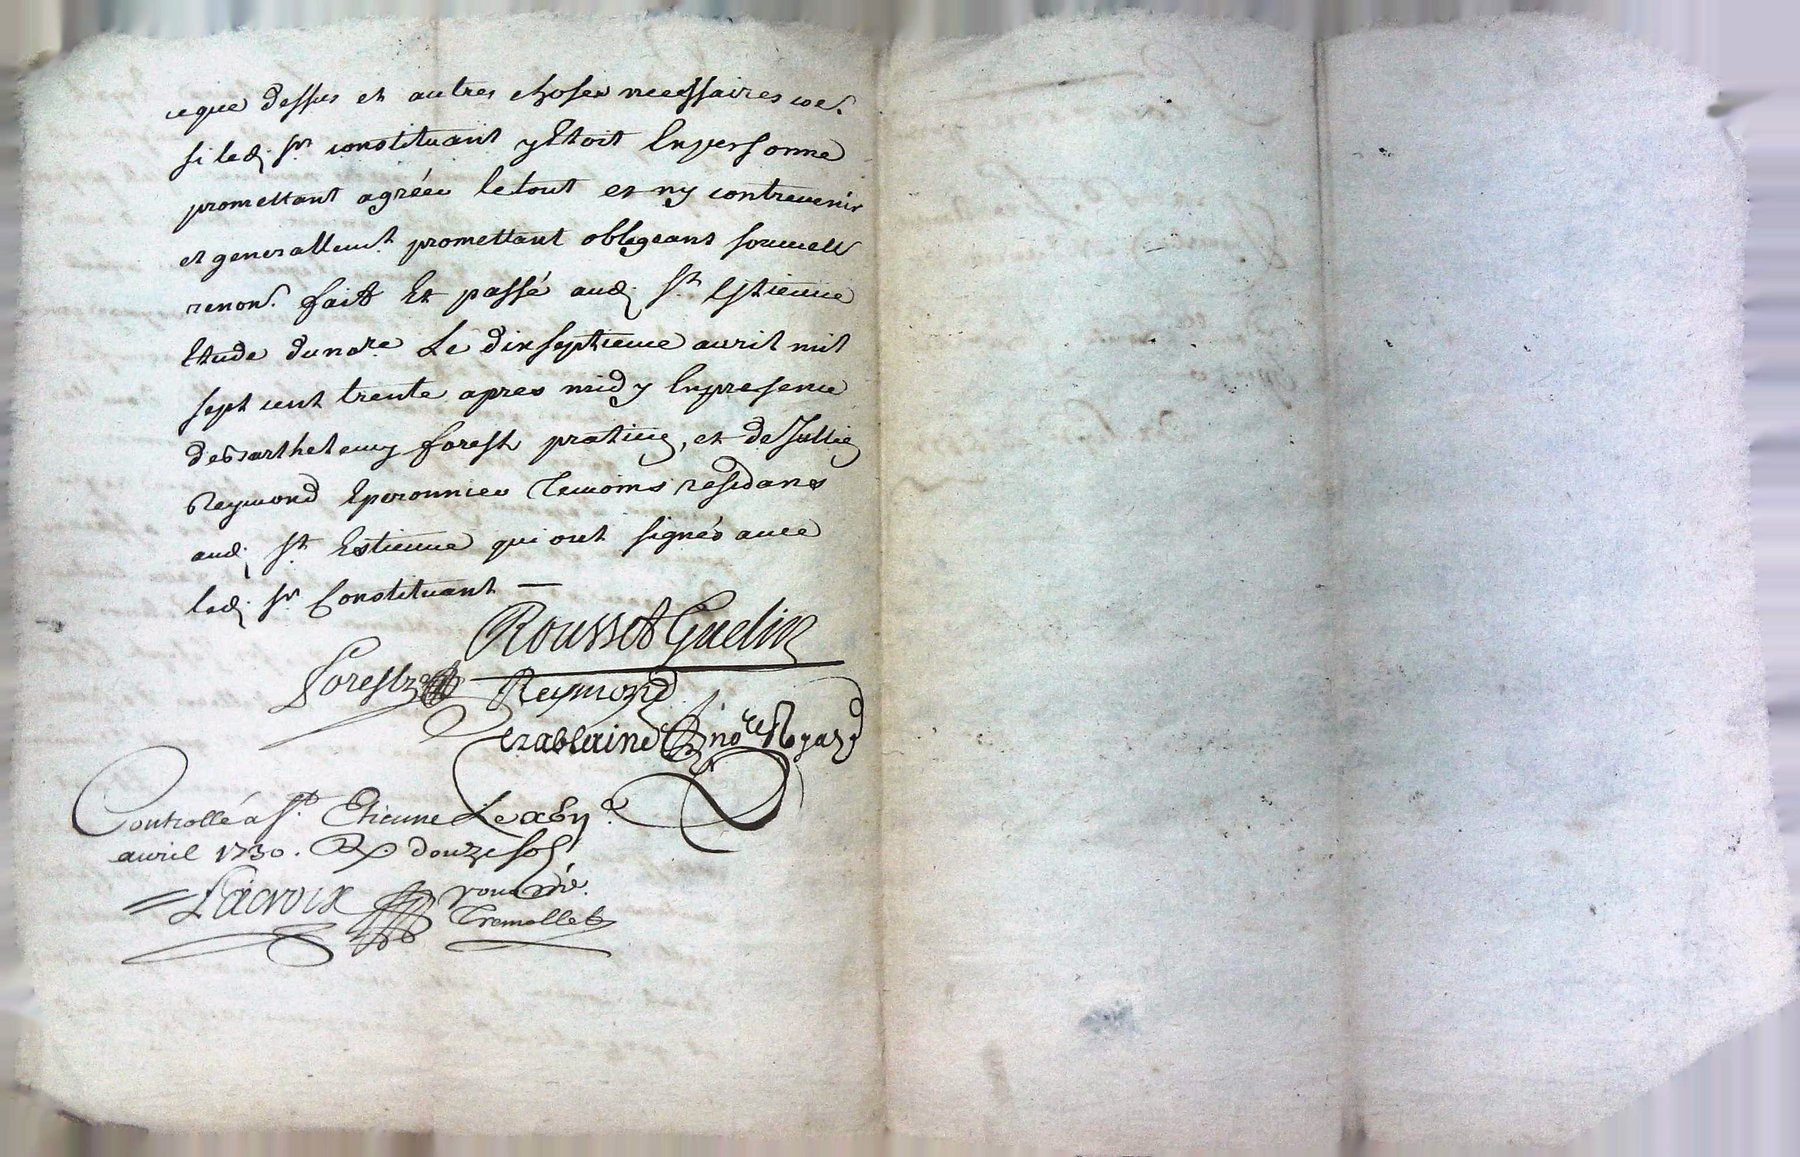 ceque dessus et autres choses necessaires co.e
si led. sr constituant y Etoit En personne
promettant agréer le tout et ny contrevenir
et generallemt. promettant obligeant soumett
renon. fait Et passé aud. St. Estienne
Etude du nore. Le dix septieme avril mil
sept cent trente apres midy En presence
de Barthelemy forest praticn, et de Jullien
Reymond Eperonnier Temoins residans
aud. St. Estienne qui ont signés avec
led. sr Constituant —
Rousset Guelin
Forest Reymond
nore Royal
Controllé a St. Etienne Le
avril 1730. Rx douze sols
Lacroix
Tremollet